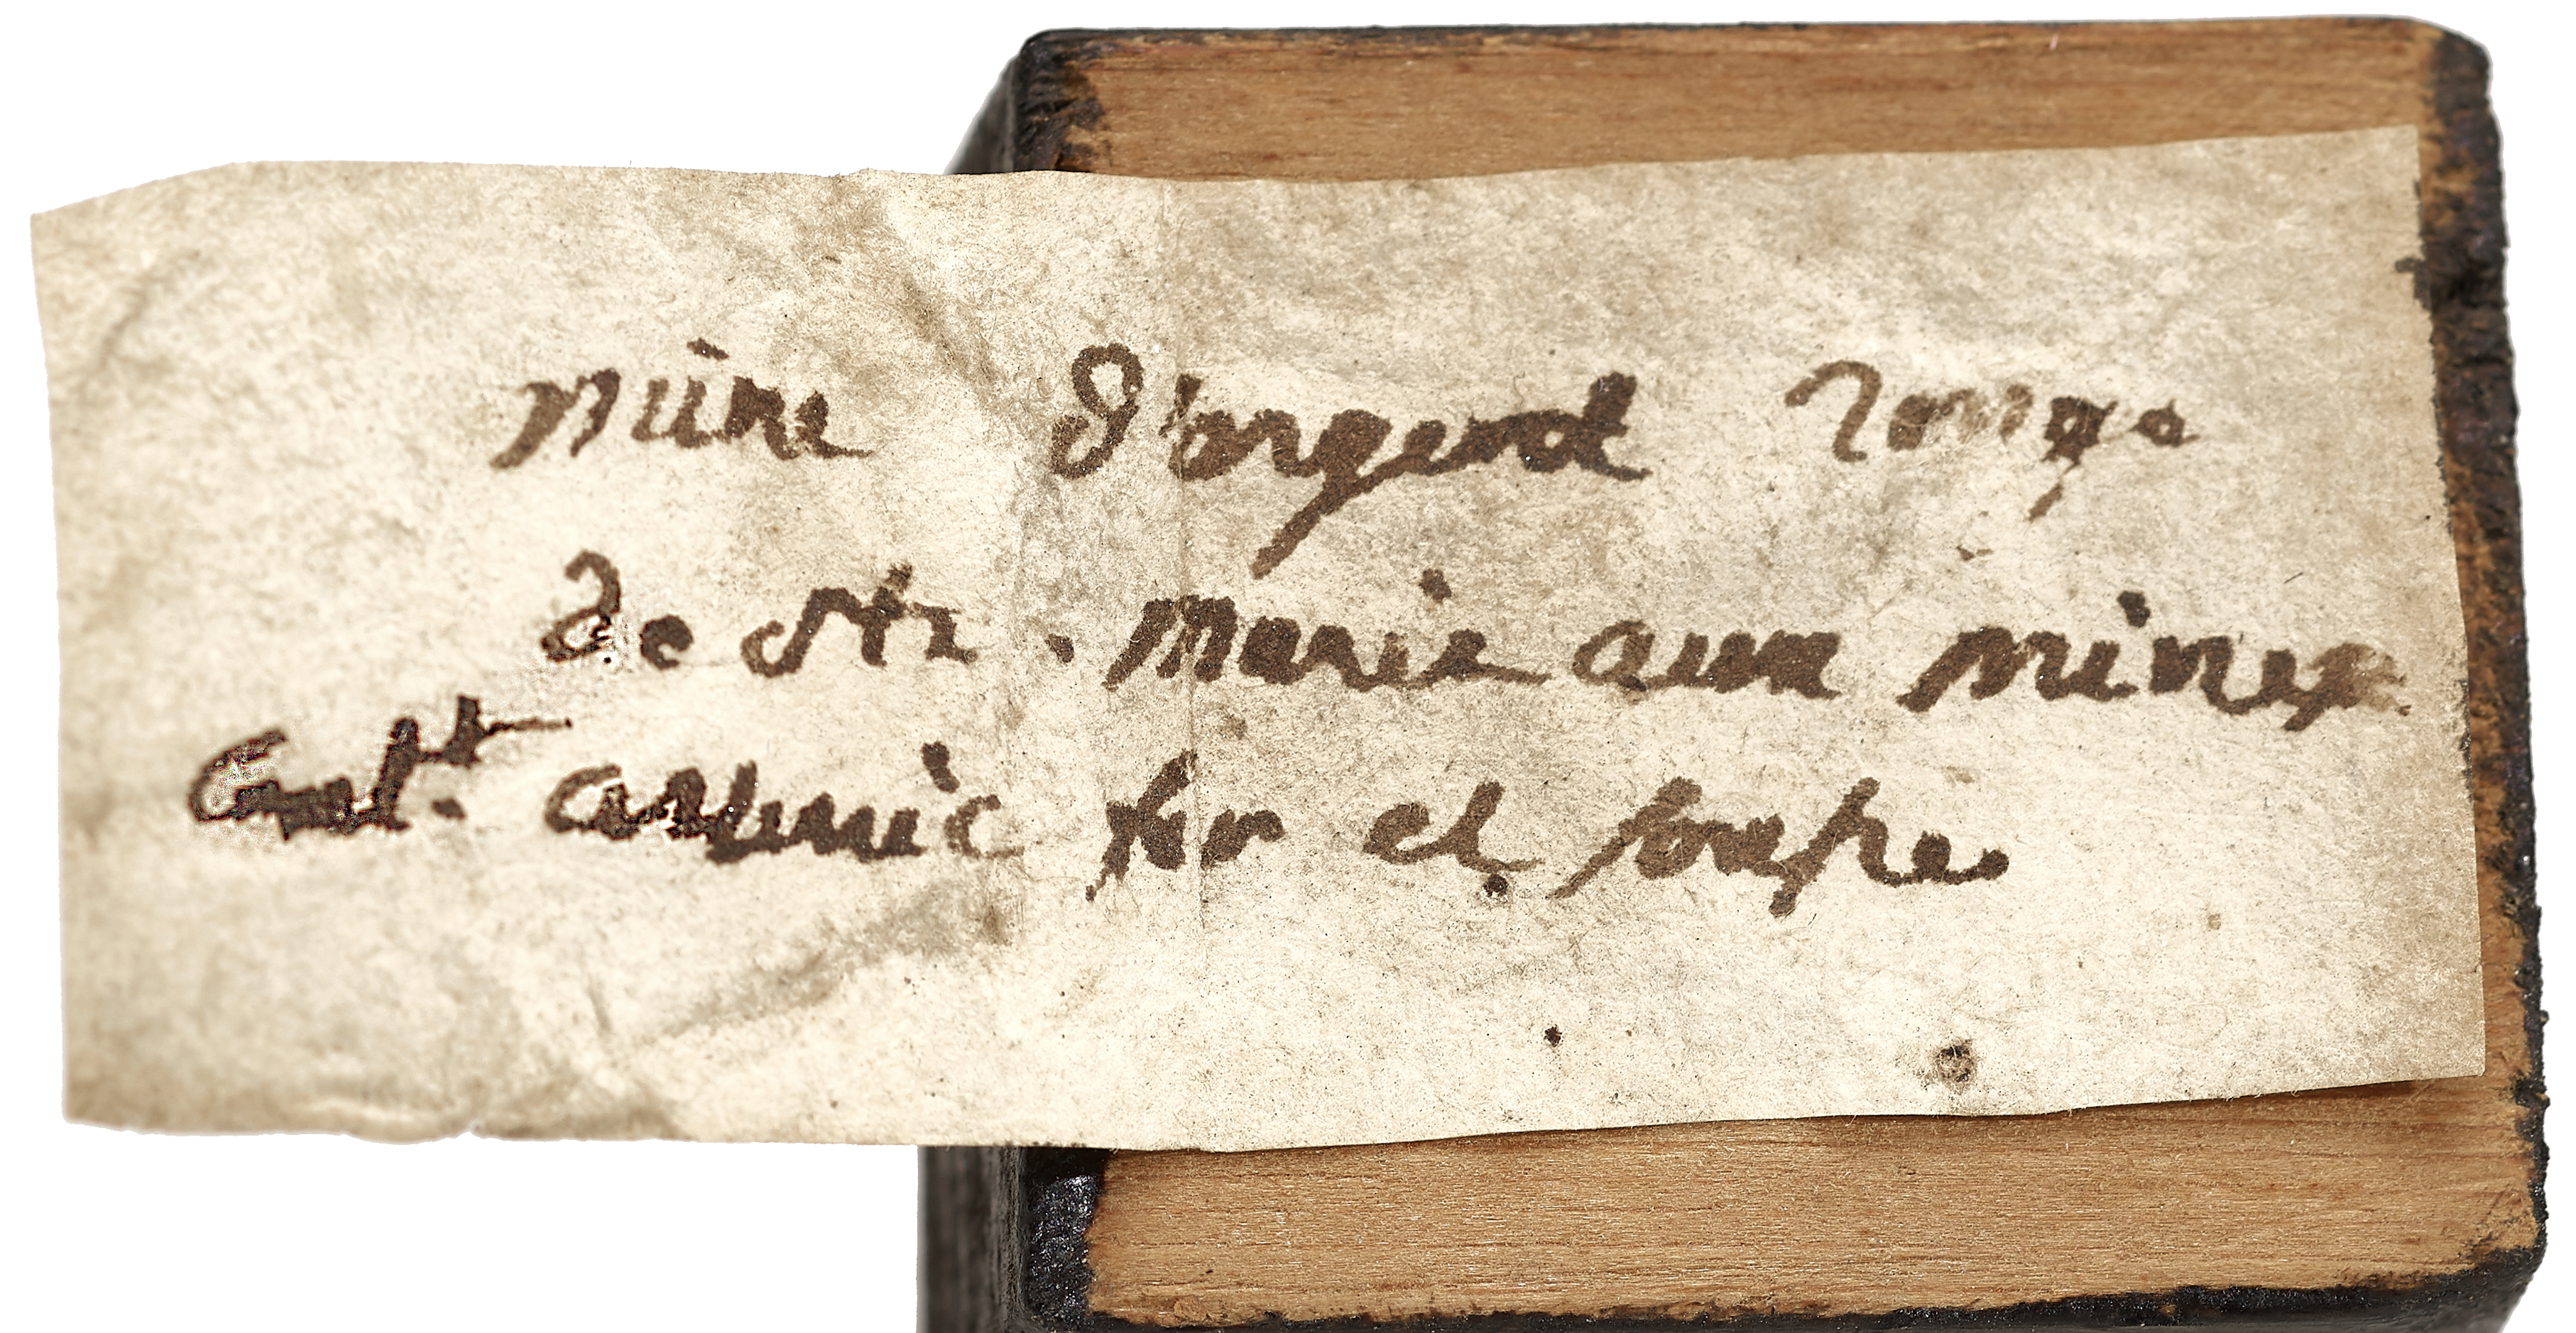 mine d'argent rouge
de Ste. Marie aux mines
Contt. arsenic fer et soufre.